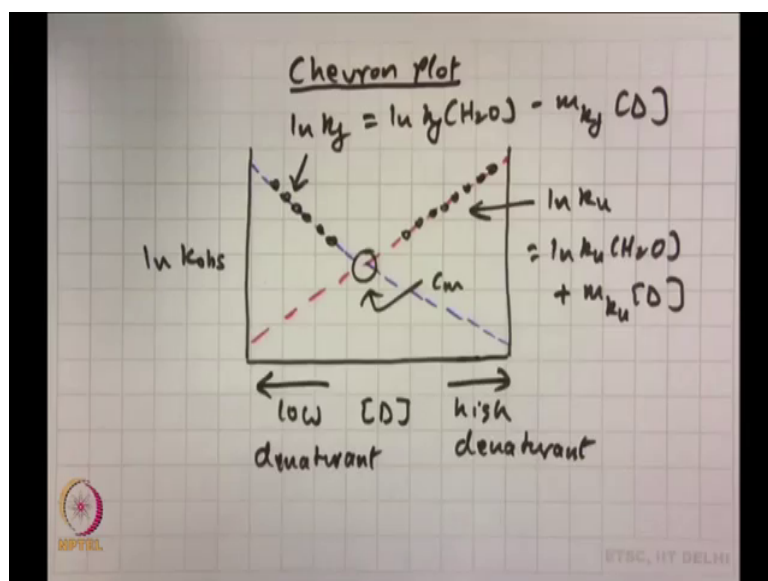 Chevron plot
ln kf = ln kf(H2O) - mkf [D]
ln ku
= ln ku(H2O)
+ mku [D]
ln kobs
Cm
low [D] high
denaturant denaturant
NPTEL
ETSC, IIT DELHI